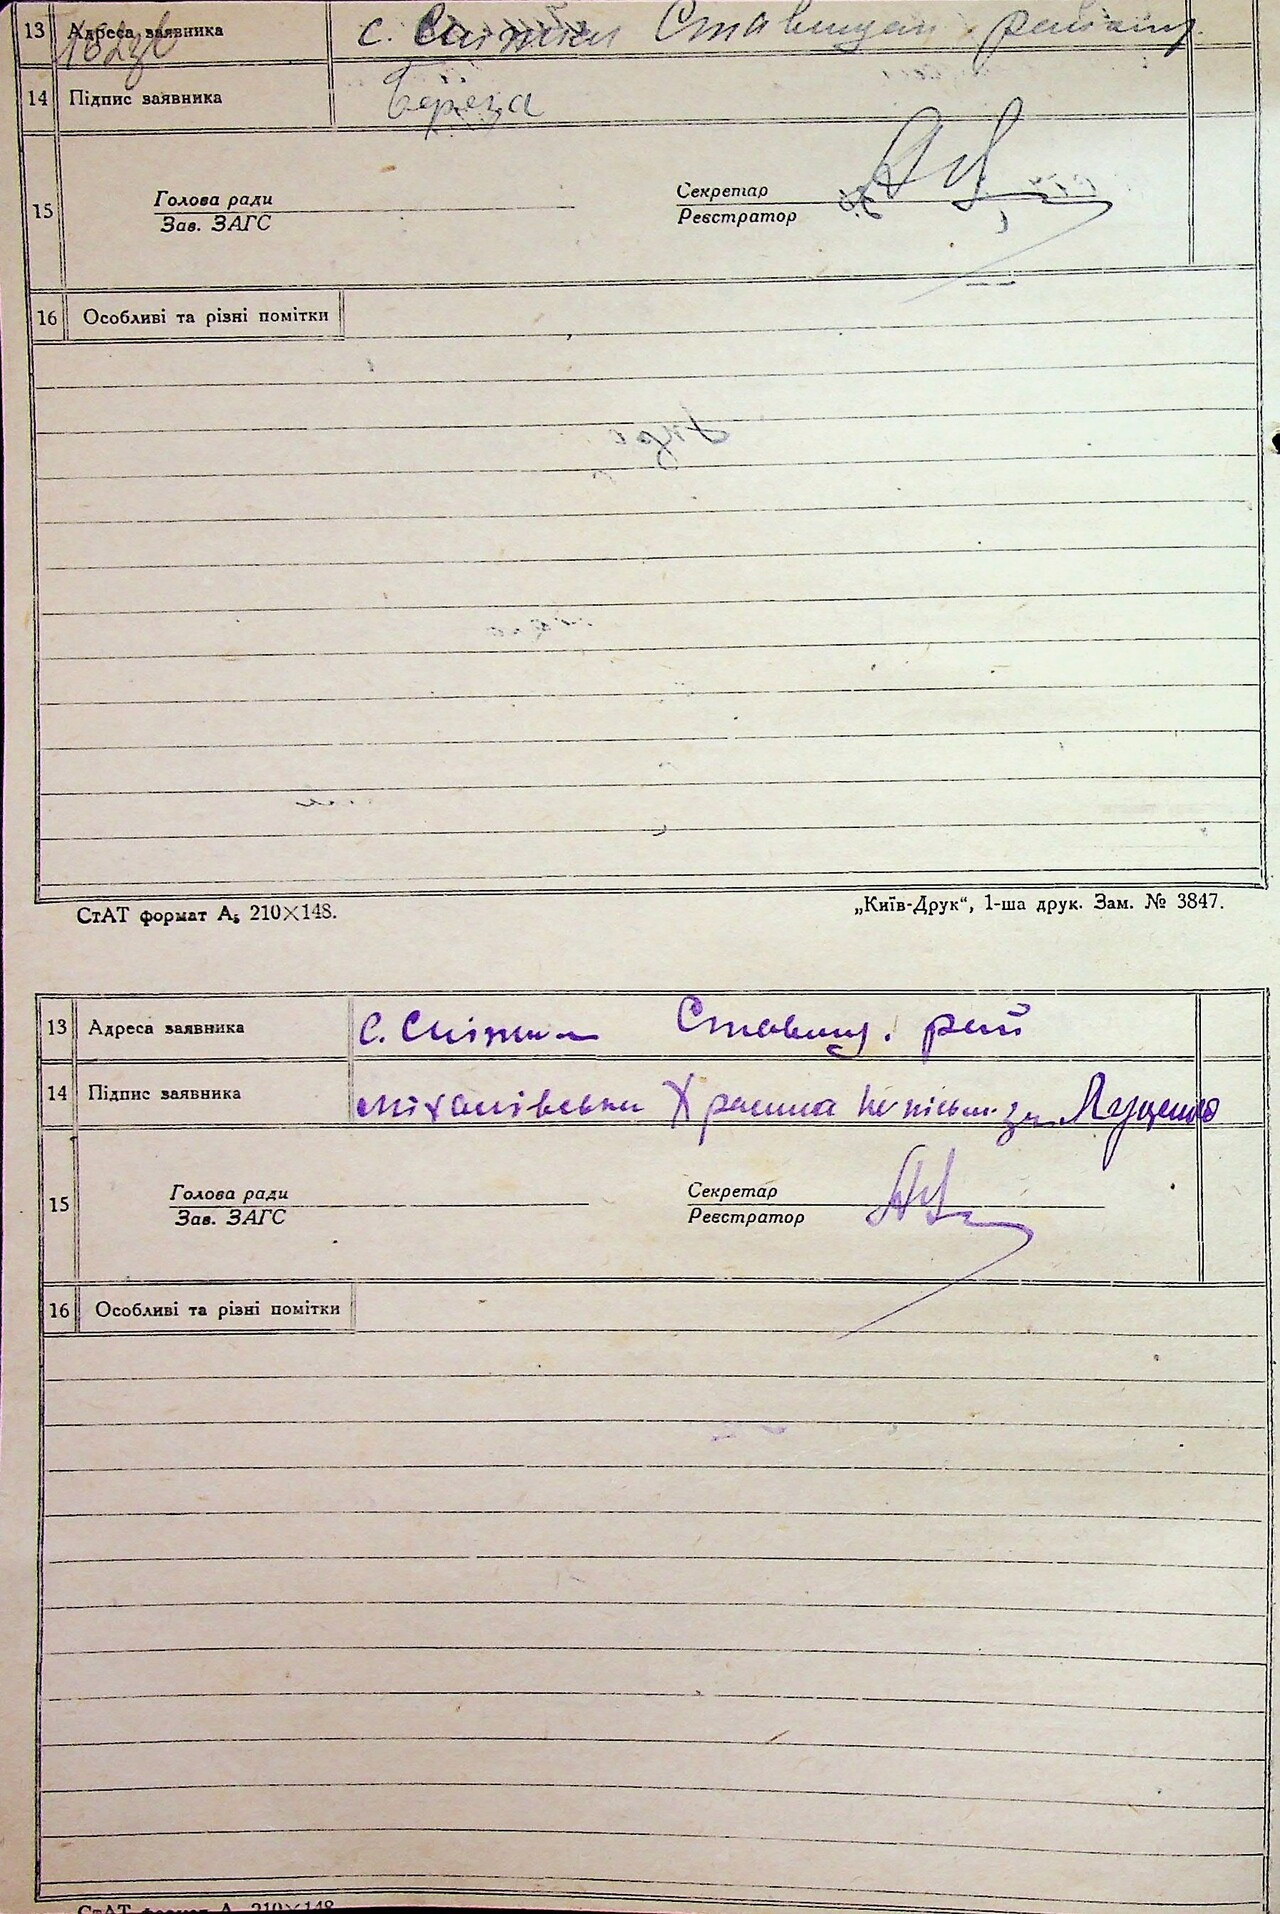 13 Адреса заявника с. Сніжки Ставищан. району.
14 Підпис заявника Береза
Голова ради Секретар
15
Зав. ЗАГС Реєстратор
16 Особливі та різні помітки
СтАТ формат А₅ 210×148. „Київ-Друк“, 1-ша друк. Зам. № 3847.
13 Адреса заявника С. Сніжки Ставищ. рай
14 Підпис заявника неписьм. за Луценко
Голова ради Секретар
15
Зав. ЗАГС Реєстратор
16 Особливі та різні помітки
СтАТ формат А 210×148